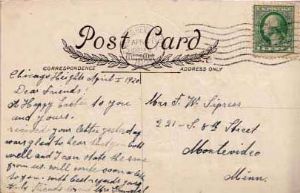 Post Card
CORRESPONDENCE
ADDRESS ONLY
Chicago Heights April 1 1920
Dear Friends!
A Happy Easter to you
and yours.
received your letter yesterday
was glad to hear that you
well and I can state the same
from us will write soon a
to you. with best regards
Mrs J. W. Sipress
221- S. 8th Street
Montevideo
Minn.